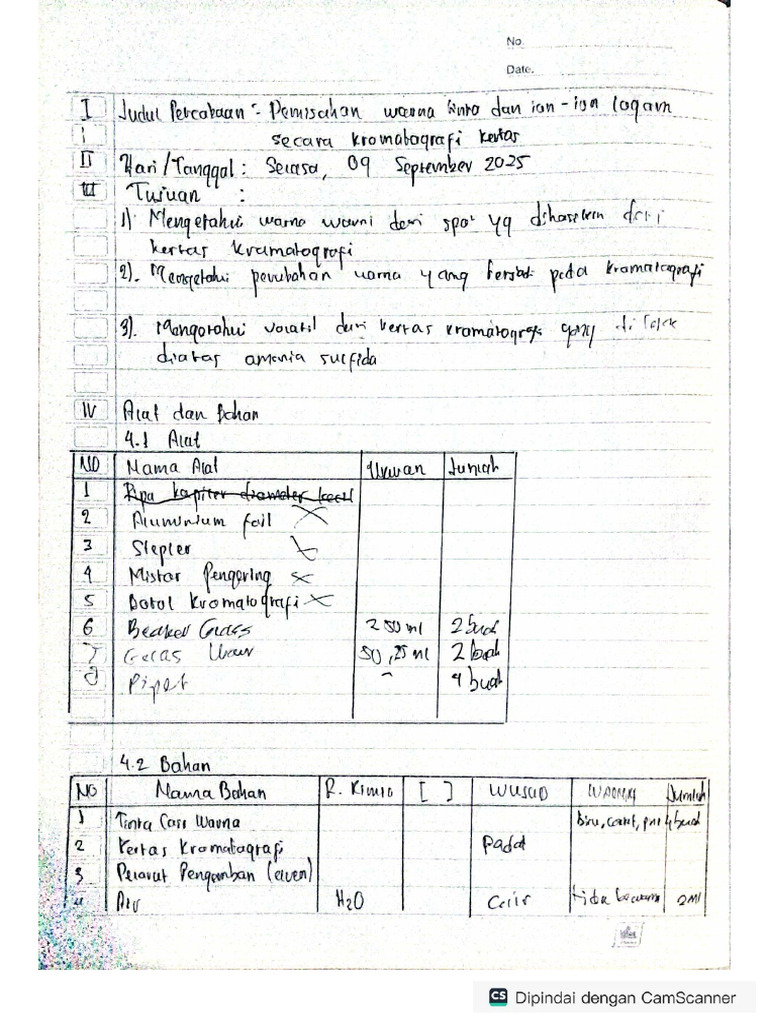 No.
Date.
I Judul Percobaan :- Pemisahan warna tinta dan ion-ion logam
i secara kromatografi kertas
II Hari/Tanggal : Selasa, 09 September 2025
III Tujuan :
1) Mengetahui warna warni dari spot yg dihasilkan dari
kertas kromatografi
2). Mengetahui perubahan warna yang terjadi pada kromatografi
3). Mengetahui volatil dari kertas kromatografi yang di
diatas amonia sulfida
IV Alat dan Bahan
4.1 Alat
NO Nama Alat Ukuran Jumlah
1 Pipa kapiler diameter kecil
2 Aluminium foil
3 Stepler
4 Mistar Pengering
5 Botol Kromatografi
6 Beaker Glass 250 ml 2 buah
7 Gelas Ukur 50, 25 ml 2 buah
8 Pipet - 4 buah
4.2 Bahan
NO Nama Bahan R. Kimia [ ] WUJUD WARNA Jumlah
1 Tinta Cair Warna biru, 4 buah
2 Kertas Kromatografi Padat
3 Pelarut Pengemban (eluen)
4 Air H2O Cair tidak berwarna 2 ml
CS Dipindai dengan CamScanner